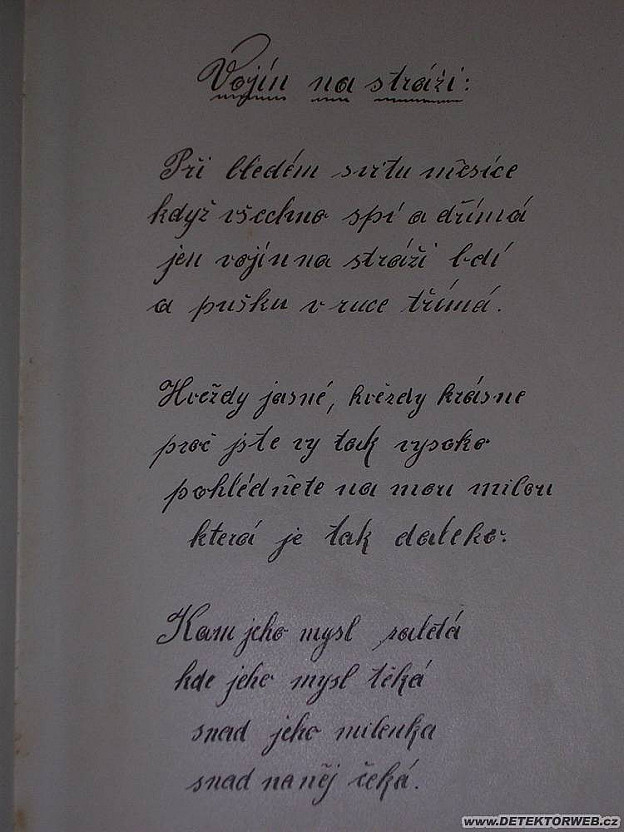 Vojín na stráži:
Při bledém svitu měsíce
když všechno spí a dřímá
jen vojín na stráži bdí
a pušku v ruce třímá.
Hvěždy jasné, hvězdy krásne
proč jste vy tak vysoko
pohlédněte na mou milou
která je tak daleko.
Kam jeho mysl zalétá
kde jeho mysl těká
snad jeho milenka
snad na něj čeká.
www.DETEKTORWEB.cz